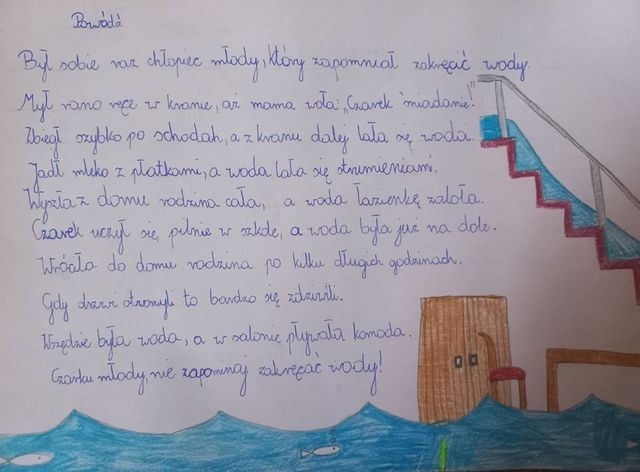 Powódź
Był sobie raz chłopiec młody, który zapomniał zakręcać wody.
Mył rano ręce w kranie, aż mama woła: „Czarek śniadanie!"
Zbiegł szybko po schodah, a z kranu dalej lała się woda.
Jadł mleko z płatkami, a woda lała się strumieniami.
Wyszła z domu rodzina cała, a woda łazienkę zalała.
Czarek uczył się pilnie w szkole, a woda była już na dole.
Wróciła do domu rodzina po kilku długich godzinach.
Gdy drzwi otworzyli to bardzo się zdziwili.
Wszędzie była woda, a w salonie pływała komoda.
Czarku młody, nie zapomnaj zakręcać wody!